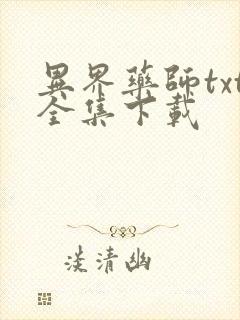 異界藥師txt
全集下載
淡清幽